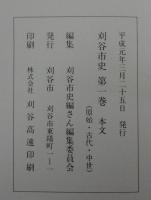 平成元年三月二十五日 発行
刈谷市史 第一巻 本文
(原始・古代・中世)
編集 刈谷市史編さん編集委員会
発行 刈谷市
刈谷市東陽町一―一
印刷 株式会社 刈谷高速印刷